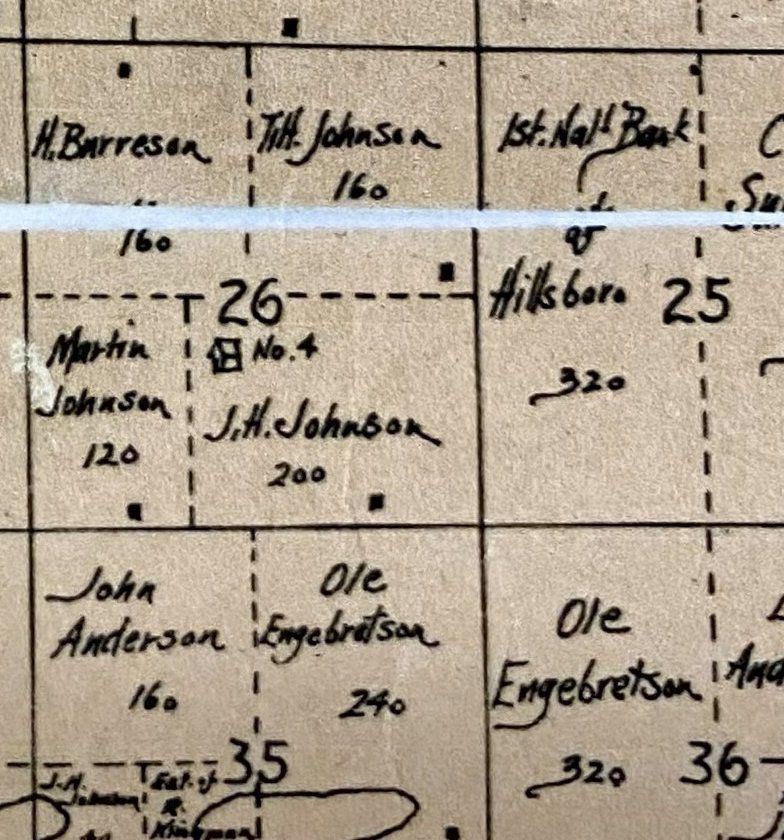 H. Burreson
160
T.H. Johnson
160
1st. Nat'l Bank
of
Hillsboro
320
26
25
No. 4
Martin
Johnson
120
J.H. Johnson
200
John
Anderson
160
Ole
Engebretson
240
Ole
Engebretson
320
35
36
J.H.
Johnson
Est. of
Kingman